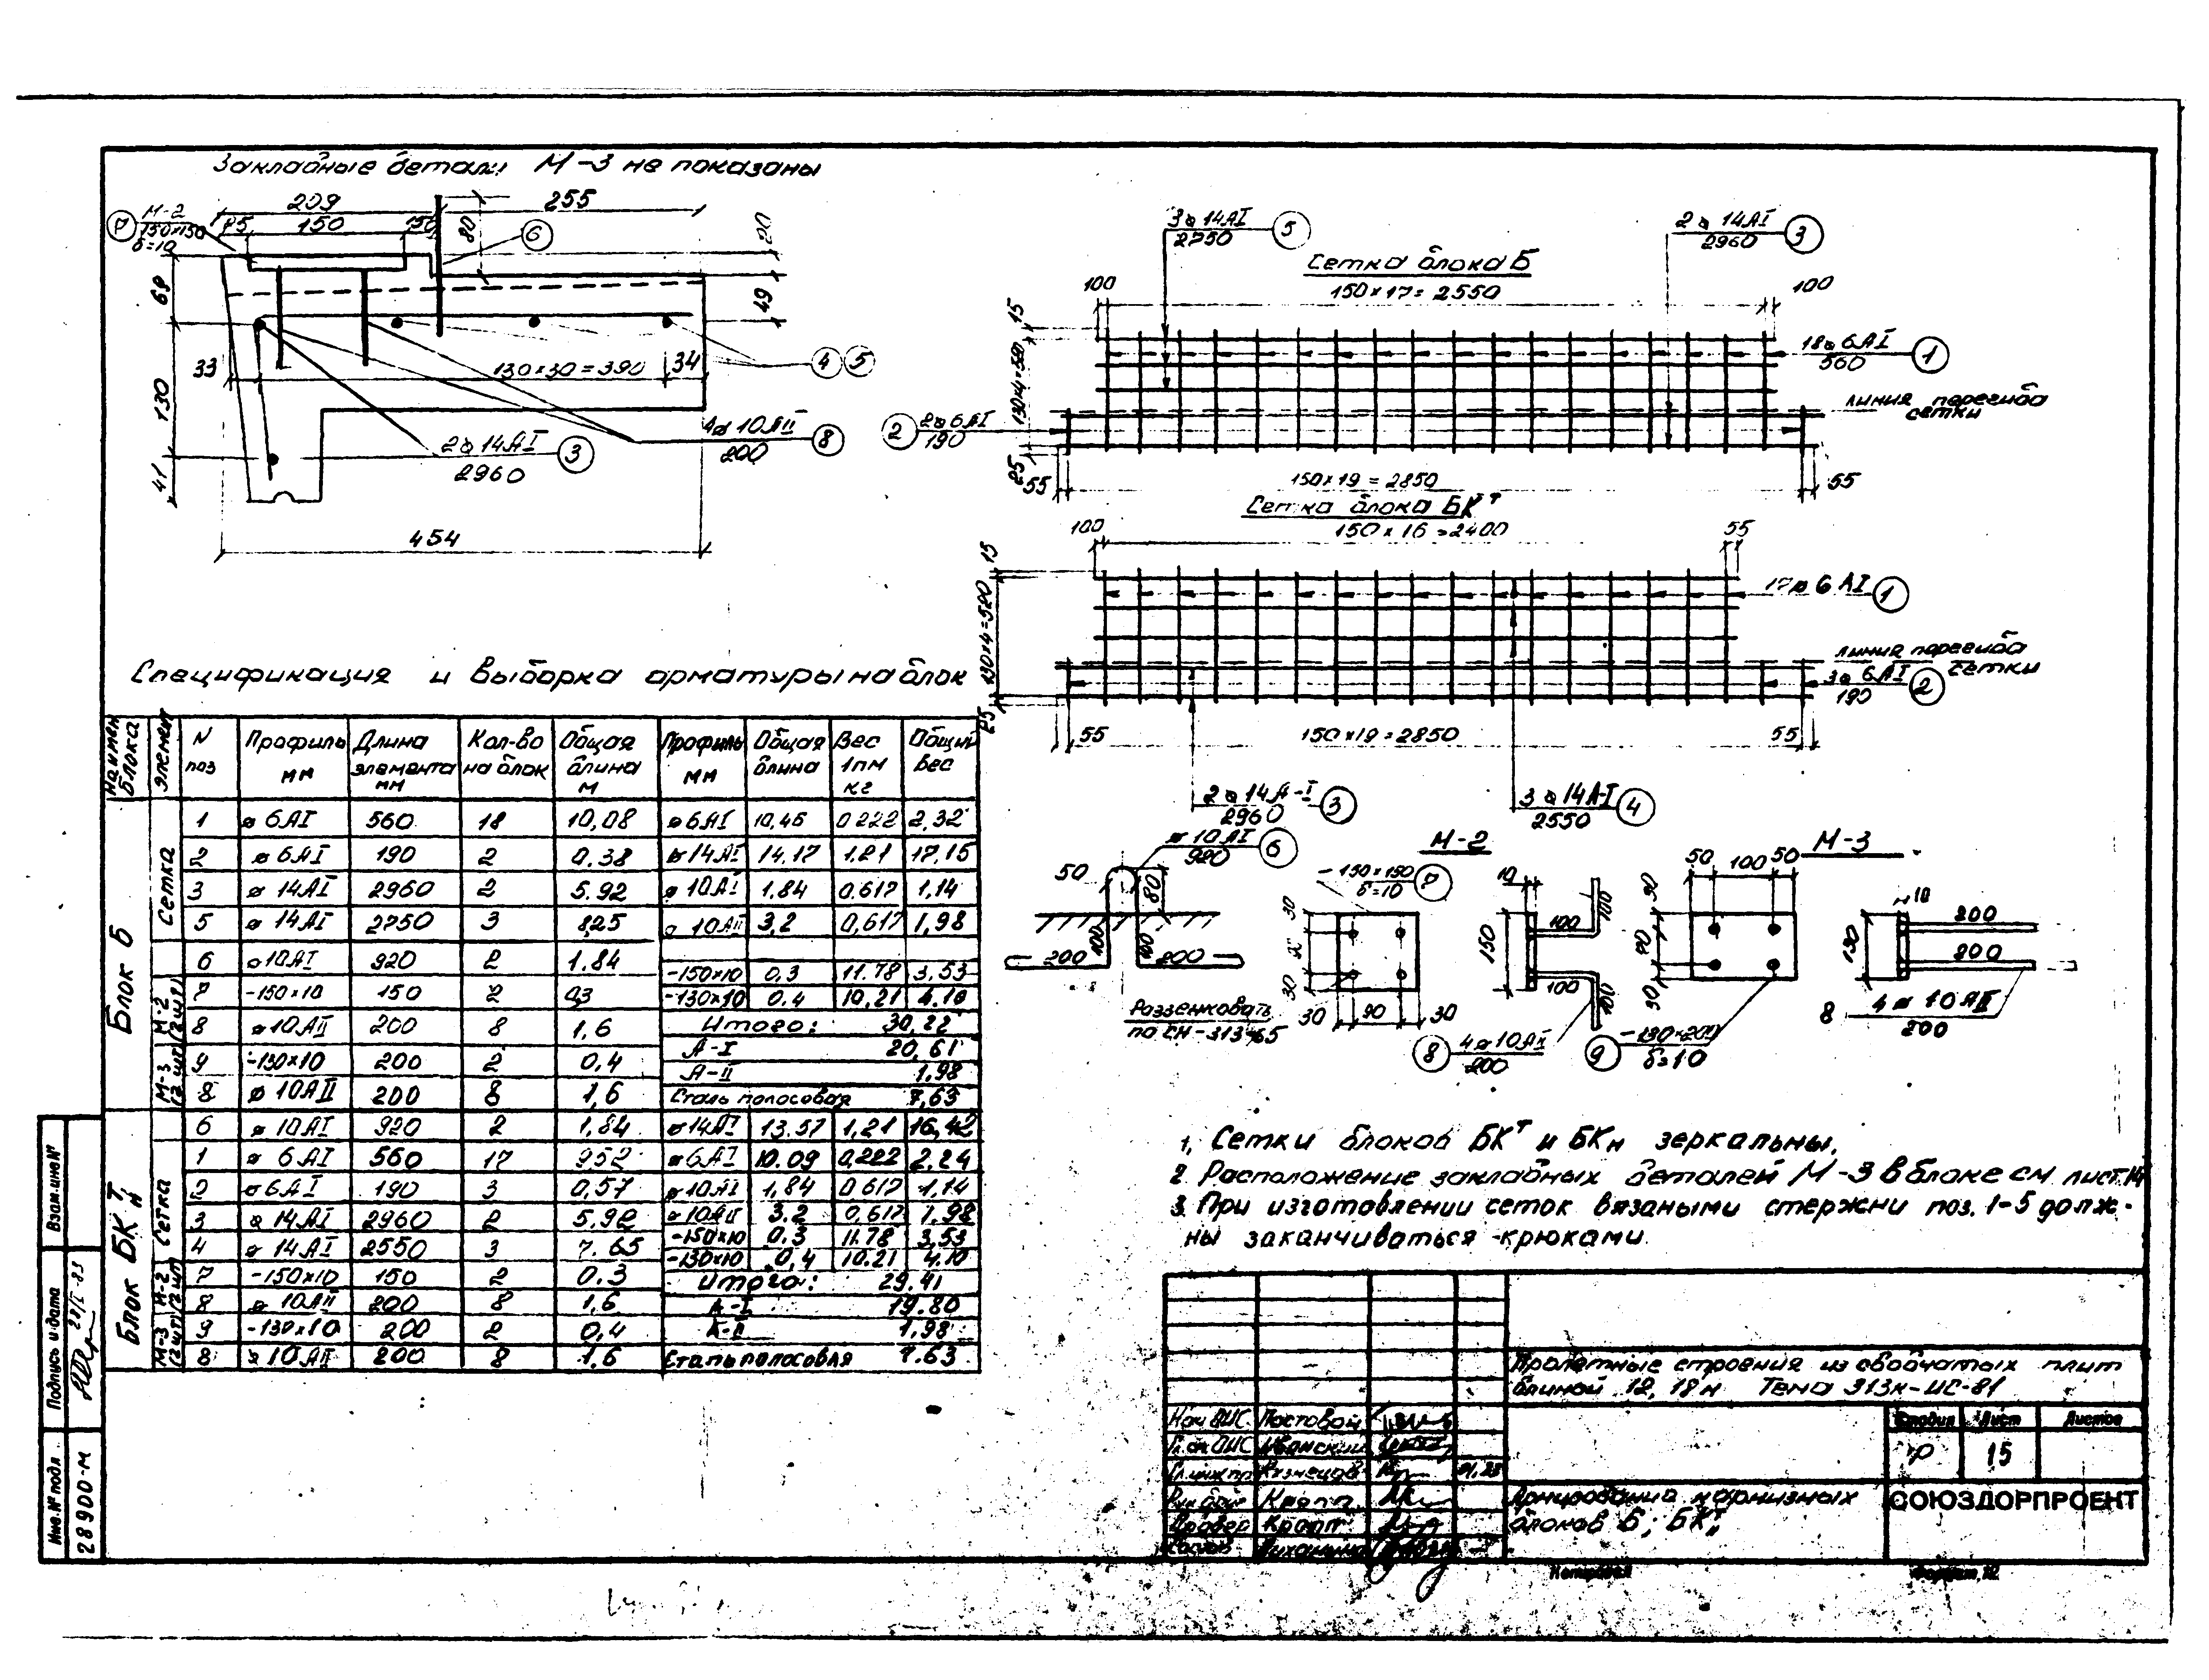 Закладные детали М-3 не показаны
209 255
25 150 150
7 М-2
150×150
δ=10
80 6 20
69 49
33 130×30=390 34
4 5
130
2⌀14АI 3
2960
4⌀10АII 8
200
41
454
3⌀14АI 5
2750
2⌀14АI 3
2960
Сетка блока Б
100 150×17=2550 100
15
18⌀6АI 1
560
130×4=520
линия перегиба
сетки
2 2⌀6АI
190
25
55 150×19=2850 55
Сетка блока БКт
100 150×16=2400 55
15
17⌀6АI 1
130×4=520
линия перегиба
сетки
3⌀6АI 2
190
25
55 150×19=2850 55
2⌀14А-I 3
2960
3⌀14А-I 4
2550
⌀10АI 6
920
50 80
100 100
200 200
М-2
-150×150 7
δ=10
30
30
30 90 30
Раззенковать
по СН-313-65
10
150
100 100
100 100
8 4⌀10АII
200
М-3
50 100 50
30
70
30
9 -130×200
δ=10
10
130
200
200
8 4⌀10АII
200
Спецификация и выборка арматуры на блок
Наимен блока Элемент N поз Профиль мм Длина элемента мм Кол-во на блок Общая длина м Профиль мм Общая длина Вес 1пм кг Общий вес
Блок Б
Сетка
1 ⌀6АI 560 18 10,08 ⌀6АI 10,46 0.222 2,32
2 ⌀6АI 190 2 0.38 ⌀14АI 14,17 1.21 17,15
3 ⌀14АI 2960 2 5.92 ⌀10АI 1,84 0.617 1,14
5 ⌀14АI 2750 3 8,25 ⌀10АII 3,2 0,617 1,98
6 ⌀10АI 920 2 1.84 -150×10 0,3 11.78 3,53
М-2 (2шт)
7 -150×10 150 2 0,3 -130×10 0.4 10,21 4.10
8 ⌀10АII 200 8 1,6 Итого: 30,22
М-3 (2шт)
9 -130×10 200 2 0,4 А-I 20,61
А-II 1,98
8 ⌀10АII 200 8 1,6 Сталь полосовая 7,63
Блок БКт,н
6 ⌀10АI 920 2 1,84 ⌀14АI 13.57 1,21 16,42
Сетка
1 ⌀6АI 560 17 952 ⌀6АI 10.09 0,222 2.24
2 ⌀6АI 190 3 0,57 ⌀10АI 1,84 0.617 1,14
3 ⌀14АI 2960 2 5.92 ⌀10АII 3.2 0,617 1.98
-150×10 0.3 11.78 3,53
4 ⌀14АI 2550 3 7.65 -130×10 0,4 10.21 4.10
М-2 (2шт)
7 -150×10 150 2 0.3 Итого: 29,41
8 ⌀10АII 200 8 1,6 А-I 19.80
М-3 (2шт)
9 -130×10 200 2 0,4 А-II 1,98
8 ⌀10АII 200 8 1,6 Сталь полосовая 7.63
1, Сетки блоков БКт и БКн зеркальны.
2. Расположение закладных деталей М-3 в блоке см лист.14
3. При изготовлении сеток вязаными стержни поз. 1-5 долж-
ны заканчиваться крюками.
Пролетные строения из сводчатых плит
длиной 12, 18м Тема 313м-ИС-81
Нач ОИС Постовой
Иванский
Кузнецов
Крапп
Провер Крапп
Стадия Лист Листов
Р 15
Армирование карнизных
блоков Б; БКт,н
СОЮЗДОРПРОЕКТ
Копировал
Формат А2
Взам.инв№
Подпись и дата
Инв.№подл
28900-м